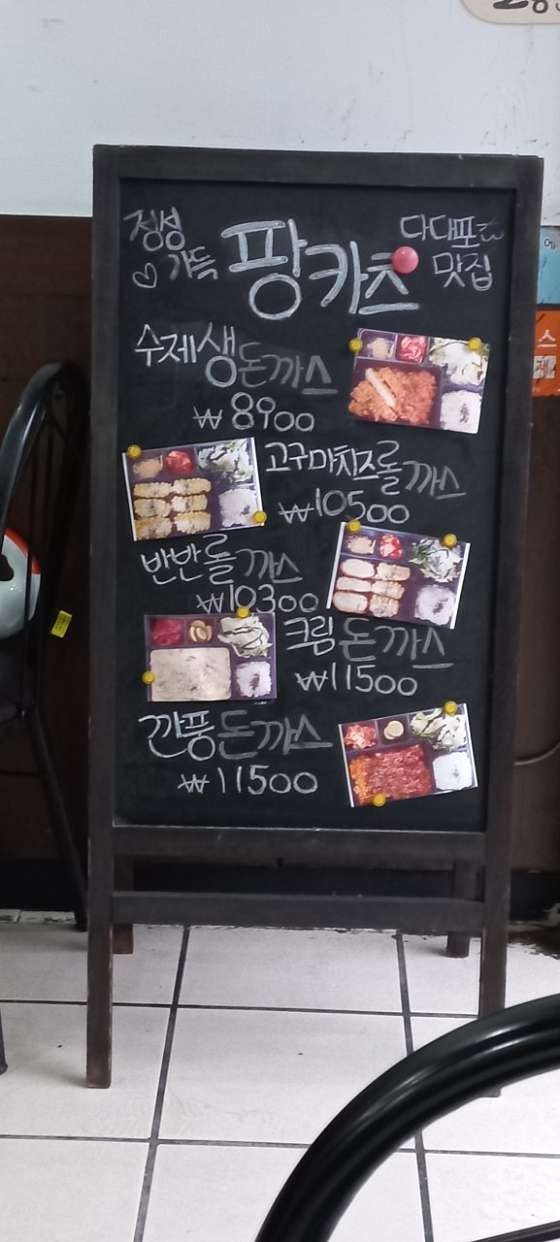 정성 가득
팡카츠
다대포
맛집
수제생돈까스
₩8900
고구마치즈롤까스
₩10500
반반롤까스
₩10300
크림돈까스
₩11500
깐풍돈까스
₩11500